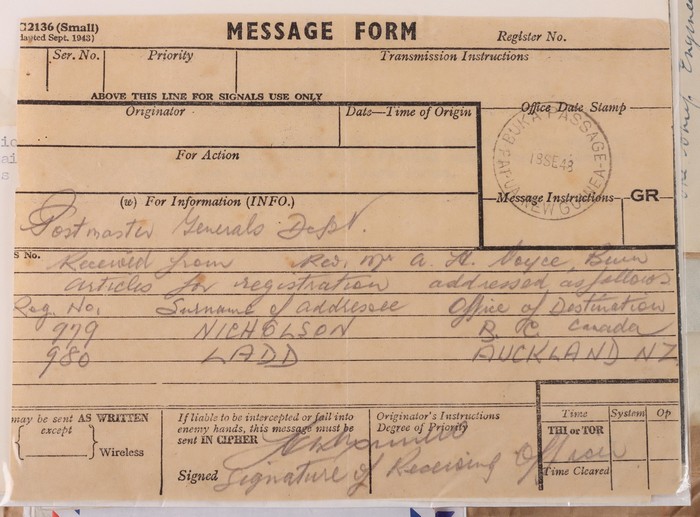 G2136 (Small)
MESSAGE FORM
Register No.
(Adapted Sept. 1943)
Ser. No.
Priority
Transmission Instructions
ABOVE THIS LINE FOR SIGNALS USE ONLY
Originator
Date—Time of Origin
Office Date Stamp
BUKA PASSAGE
18SE48
PAPUA-NEW GUINEA
For Action
Message Instructions
GR
(w) For Information (INFO.)
Postmaster Generals Dept.
S No.
Received from Rev. Mr A. H. Voyce, Buin
articles for registration addressed as follows
Reg. No. Surname of addressee Office of Destination
979 NICHOLSON B C Canada
980 LADD AUCKLAND NZ
may be sent AS WRITTEN
except
Wireless
If liable to be intercepted or fall into
enemy hands, this message must be
sent IN CIPHER
Signed
Signature of Receiving Officer
Originator's Instructions
Degree of Priority
Time
System
Op
THI or TOR
Time Cleared